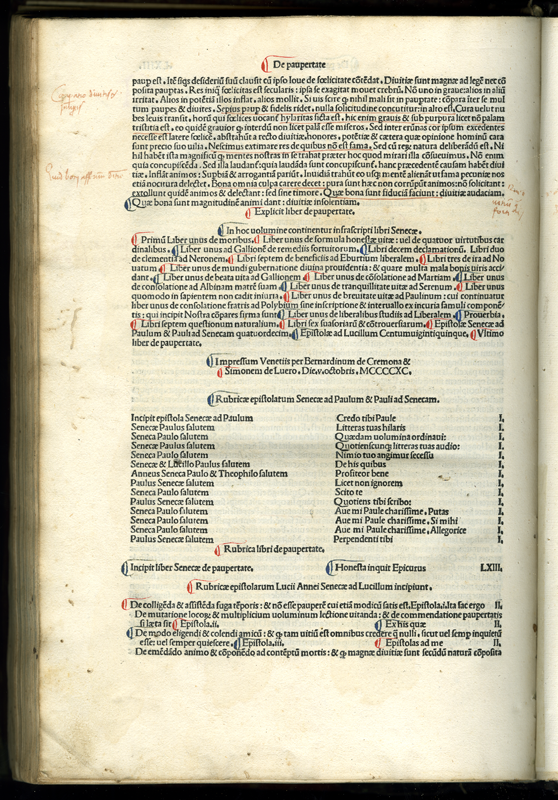 De paupertate
paup est. Itē siqs desideriū suū clausit cū ipso Ioue de fœlicitate cōtēdat. Diuitiæ sunt magnæ ad legē net cō
posita paupertas. Res iniq fœlicitas est secularis: ipsa se exagitat mouet crebrū. Nō uno in graue: alios in aliū
irritat. Alios in potētiā illos inflat. alios mollit. Si uis scire q nihil mali sit in paupertate: cōpara iter se mul
tum paupes & diuites. Sepius paup & fidelis ridet, nulla solicitudine concutitur: in alto est. Cura uelut nu
bes leuis transit. horū qui fœlices uocanf hylaritas ficta est. hic enim grauis & sub purpura licet nō palam
tristitia est. eo quidē grauior q interdū non licet palā esse miseros. Sed inter erūnas cor ipsum excedentes
necesse est latere fœlicē. abstrahit a recto diuitiæ, honores, potētiæ & cætera quæ opinione hominū cara
sunt precio suo uilia. Nescimus extimare res de quibus nō est fama. Sed cū rerum natura deliberādū est. Ni
hil habēt ista magnificū q mentes nostras in se trahāt præter hoc quod mirari illa cōsueuimus. Nō enim
quia concupiscēda. Sed illa laudant: quia laudāda sunt concupiscunt. hanc præcedentē causam habēt diui
tiæ. Inflāt animos: Supbiā & arrogantiā pariūt. Inuidiā trahūt eo usq mentē alienāt ut fama pecuniæ nos
etiā nocitura delectet. Bona omnia culpa carere decet: pura sunt hæc non corrūpūt animos: nō solicitant:
extollunt quidē animos & delectant: sed sine timore. Quæ bona sunt fiduciā faciunt: diuitiæ audaciam.
Quæ bona sunt magnitudinē animi dant: diuitiæ insolentiam.
Explicit liber de paupertate.
In hoc uolumine continentur infrascripti libri Senecæ.
Primū Liber unus de moribus. Liber unus de formula honestæ uitæ: uel de quatuor uirtutibus car
dinalibus. Liber unus ad Gallionē de remediis fortuitorum. Libri decem declamationū. Libri duo
de clementia ad Neronem. Libri septem de beneficiis ad Eburtium liberalem. Libri tres de ira ad No
uatum. Liber unus de mundi gubernatione diuina prouidentia: & quare multa mala bonis uiris acci
dant. Liber unus de beata uita ad Gallionem. Liber unus de cōsolatione ad Martiam. Liber unus
de consolatione ad Albinam matrē suam. Liber unus de tranquillitate uitæ ad Serenum. Liber unus
quomodo in sapientem non cadit iniuria. Liber unus de breuitate uitæ ad Paulinum: cui continuatur
liber unus de consolatione fratris ad Polybium sine inscriptione & interuallo ex incuria famuli componē
tis: qui incipit Nostra cōpares firma sunt. Liber unus de liberalibus studiis ad Liberalem. Prouerbia.
Libri septem questionum naturalium. Libri sex suasoriarū & cōtrouersiarum. Epistolæ Senecæ ad
Paulum & Pauli ad Senecam quatuordecim. Epistolæ ad Lucillum Centumuigintiquinque. Vltimo
liber de paupertate.
Impressum Venetiis per Bernardinum de Cremona &
Simonem de Luero. Die.v.octobris. MCCCCXC.
Rubricæ epistolarum Senecæ ad Paulum & Pauli ad Senecam.
Incipit epistola Senecæ ad Paulum Credo tibi Paule I.
Senecæ Paulus salutem Litteras tuas hilaris I.
Seneca Paulo salutem Quædam uolumina ordinaui: I.
Seneca Paulo salutem Quotienscunq litteras tuas audio: I.
Seneca Paulo salutem Nimio tuo angimur secessu I.
Senecæ & Lucillo Paulus salutem De his quibus I.
Anneus Seneca Paulo & Theophilo salutem Profiteor bene I.
Paulus Senecæ salutem Licet non ignorem I.
Seneca Paulo salutem Scito te I.
Paulus Senecæ salutem Quotiens tibi scribo: I.
Seneca Paulo salutem Aue mi Paule charissime. Putas I.
Seneca Paulo salutem Aue mi Paule charissime. Si mihi I.
Seneca Paulo salutem Aue mi Paule charissime. Allegorice I.
Paulus Senecæ salutem Perpendenti tibi I.
Rubrica libri de paupertate.
Incipit liber Senecæ de paupertate. Honesta inquit Epicurus LXIII.
Rubricæ epistolarum Lucii Annei Senecæ ad Lucillum incipiunt.
De colligēda & assistēda fuga tēporis: & nō esse pauperē cui etiā modicū satis est. Epistola.i. Ita fac ergo II.
De mutatione locorum & multiplicium uoluminum lectione uitanda: & de commendatione paupertatis
si læta sit Epistola.ii. Ex his quæ II.
De modo eligendi & colendi amicū: & q tam uitiū est omnibus credere q nulli, sicut uel semp inquietū
esse: uel semper quiescere. Epistola.iii. Epistolas ad me II.
De emēdādo animo & cōponēdo ad contēptū mortis: & q magnæ diuitiæ sunt secūdū naturā cōposita